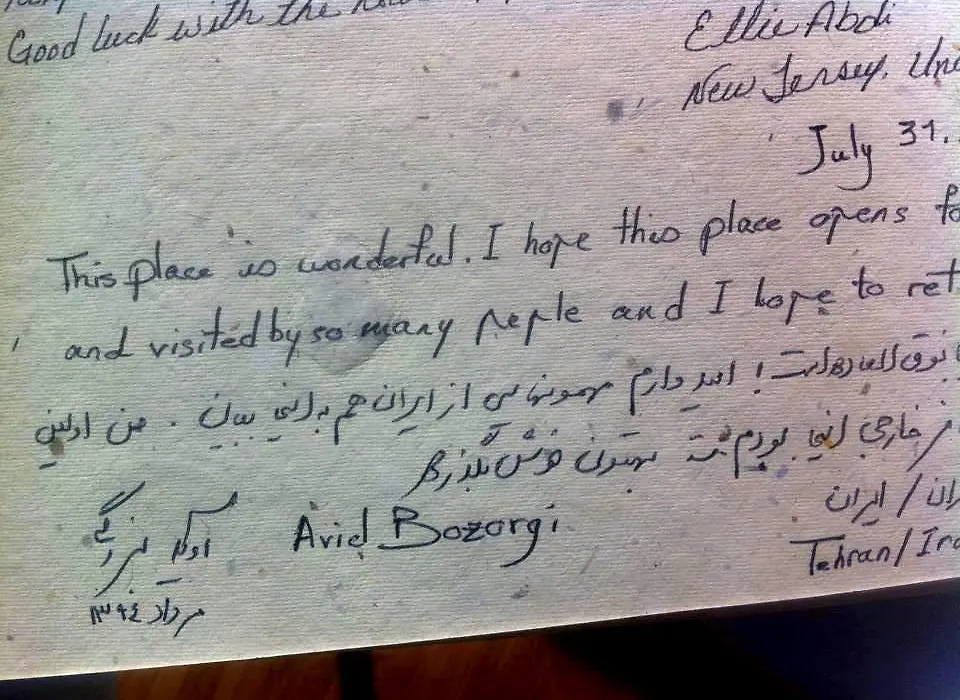 Good luck with the
Ellie Abdi
New Jersey.
July 31.
This place is wonderful. I hope this place opens
and visited by so many peple and I hope to
فوق العاده است! امید وارم مهمونهایی از ایران هم به اینجا بیان. من اولین
خارجی اینجا بودم بهتون خوش بگذره
ایران /
Avid Bozorgi
Tehran/
بزرگی
مرداد ۱۳۹٤